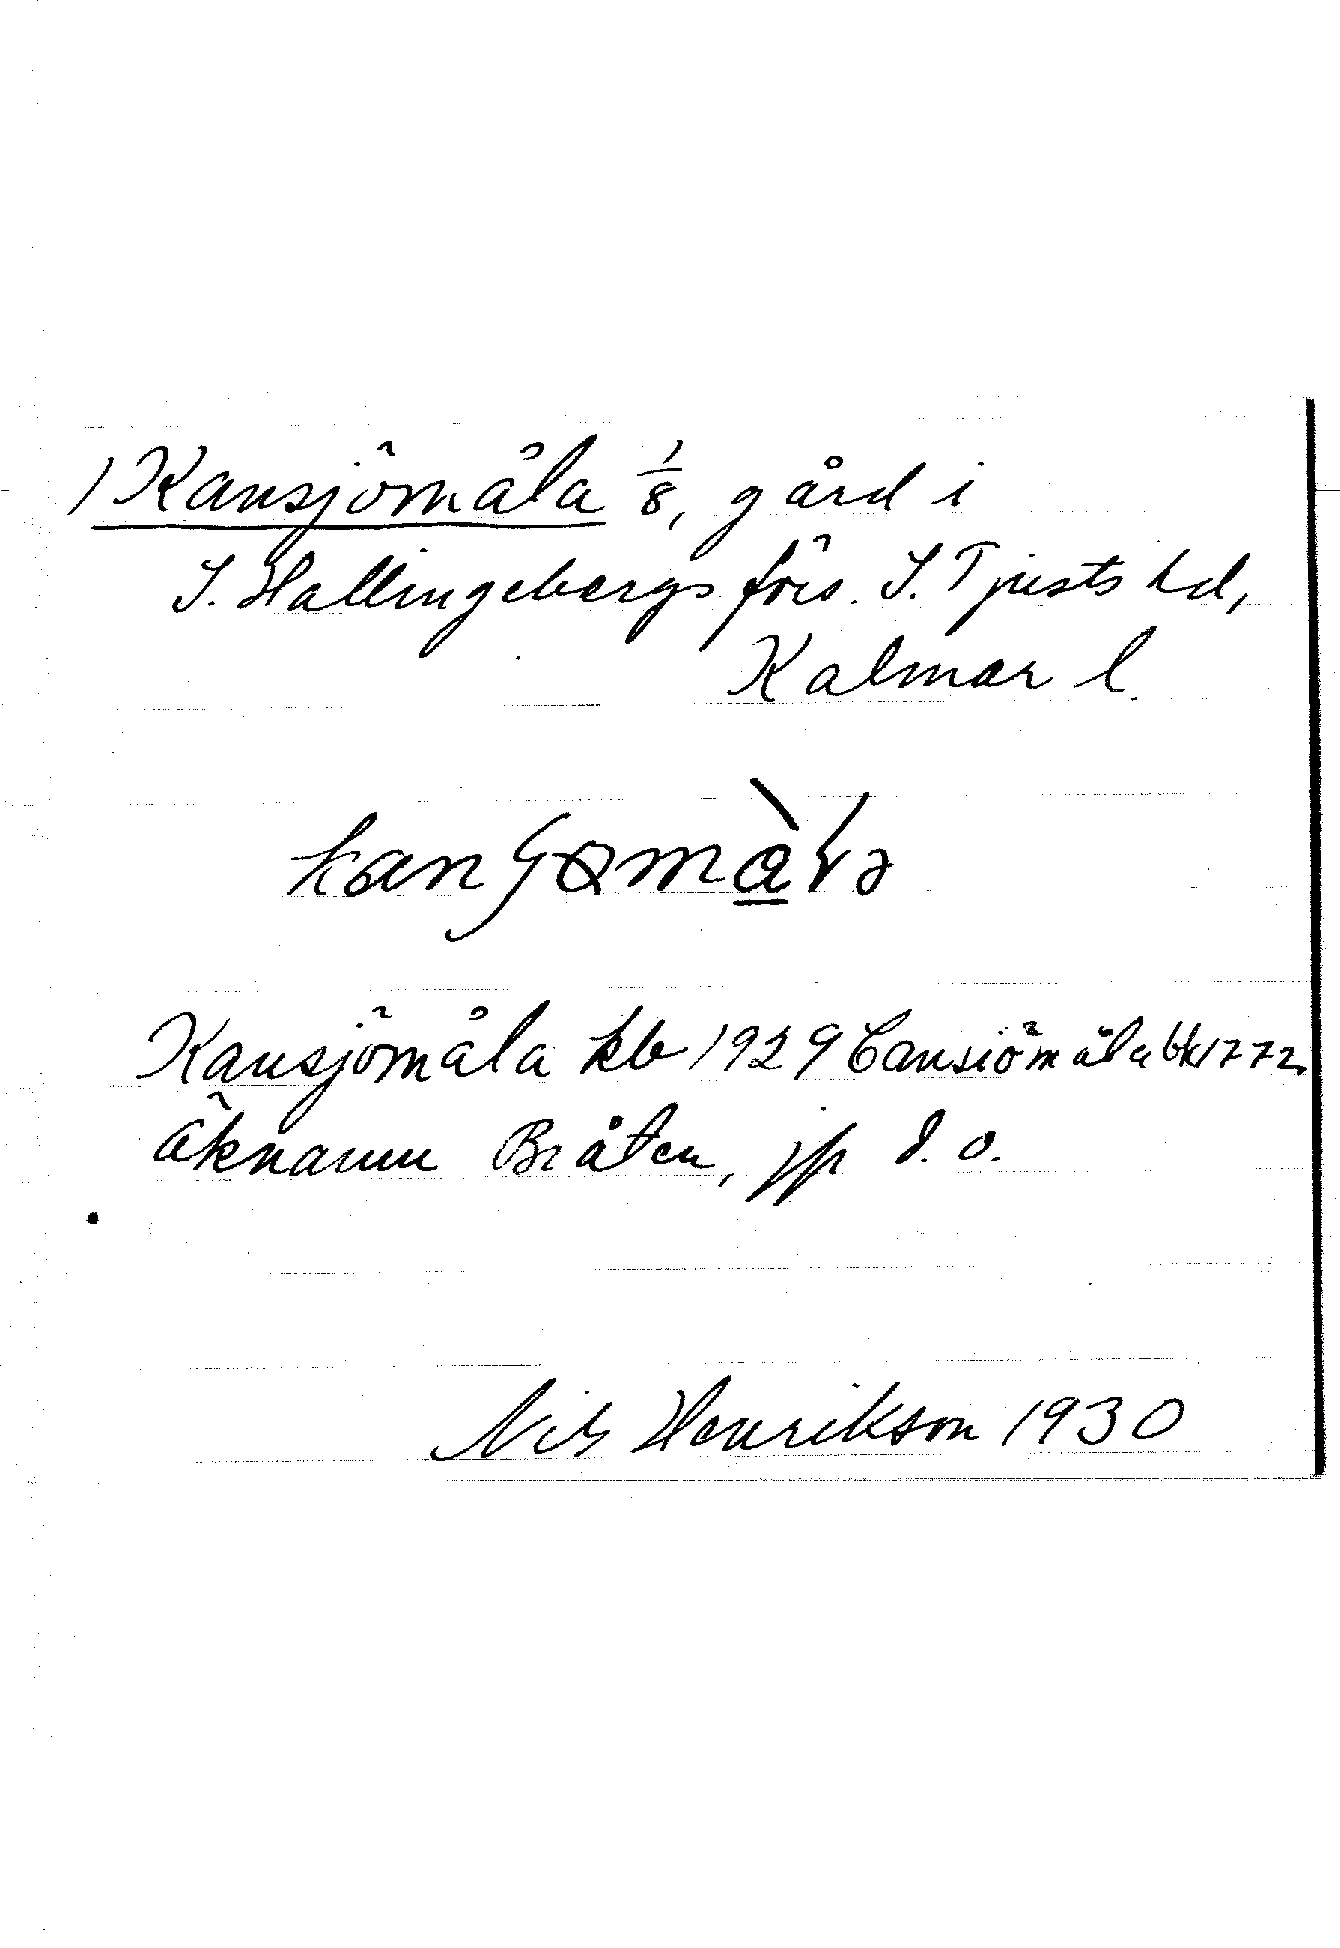 1 Kansjömåla 1/8, gård i
S. Hallingebergs förs. S. Tjusts hd,
Kalmar l.
Kansjömåla kb 1929 Cansiömåla bk 1772.
öknamn Bråten, jfr d. o.
Nils Henrikson 1930